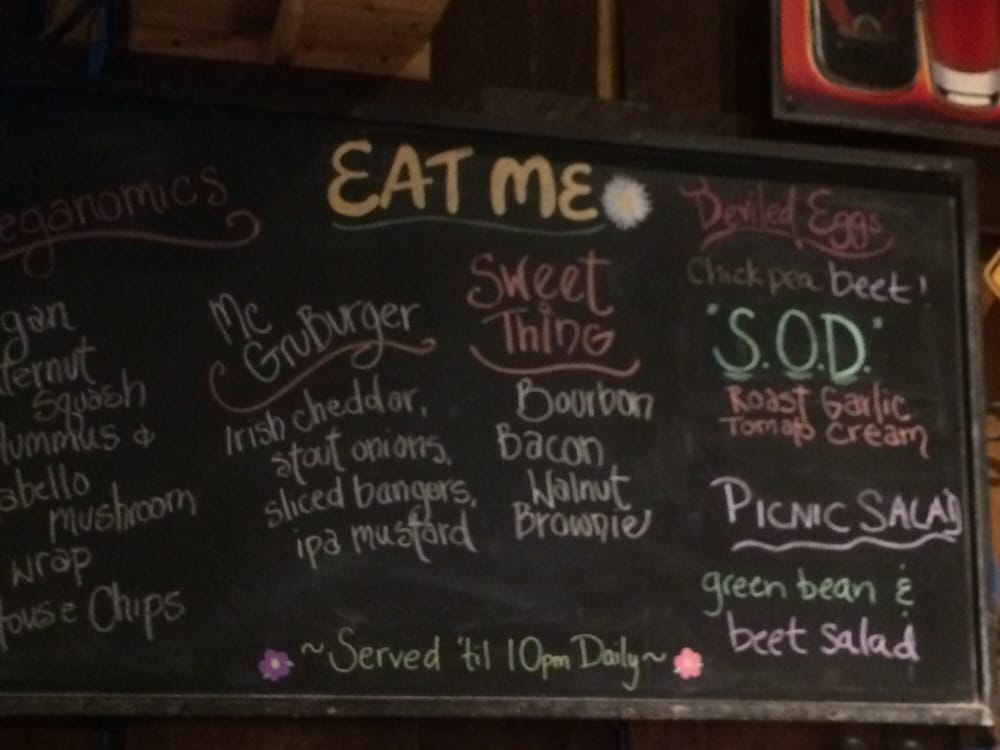 EAT ME
eganomics
gan
ternut
Squash
ummus &
abello
mushroom
wrap
ouse Chips
Mc
GruBurger
Irish cheddar,
stout onions,
sliced bangers,
ipa mustard
Sweet
Thing
Bourbon
Bacon
Walnut
Brownie
Deviled Eggs
Chickpea beet!
"S.O.D."
Roast Garlic
Tomato Cream
PICNIC SALAD
green bean &
beet salad
~Served 'til 10pm Daily~